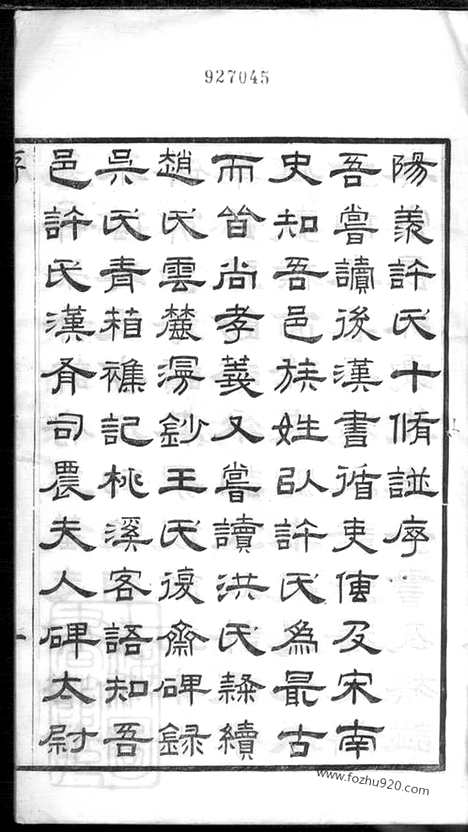 927045
陽羨許氏十脩諩序
吾嘗讀後漢書循吏傳及宋南
史知吾邑族姓以許氏為最古
而皆尚孝義又嘗讀洪氏隸續
趙氏雲麓漫鈔王氏復齋碑錄
吳氏青箱襍記桃溪客語知吾
邑許氏漢有司農夫人碑太尉
序
一
www.fozhu920.com